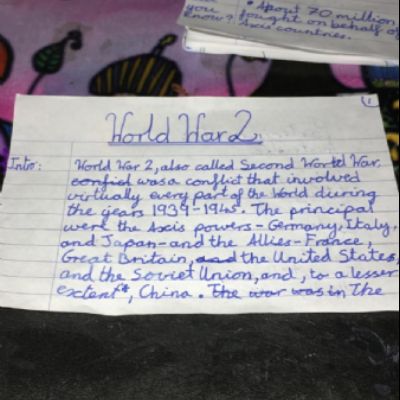 you
know?
• About 70 million
fought on behalf of
Axis countries.
1
World War 2.
Intro:
World War 2, also called Second World War,
conflict was a conflict that involved
virtually every part of the World during
the years 1939-1945. The principal
were the Axis powers - Germany, Italy,
and Japan - and the Allies - France,
Great Britain, and the United States,
and the Soviet Union, and, to a lesser
extent*, China. The war was in The